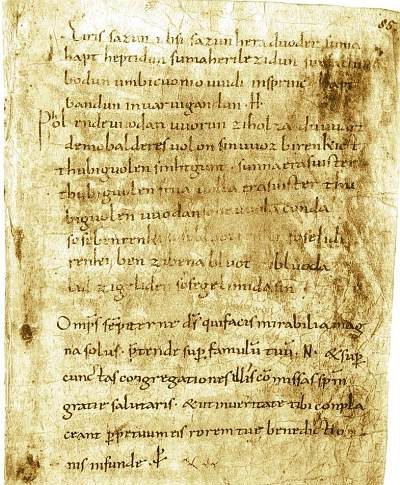 85.
Eiris sazun idisi sazun hera duoder suma
hapt heptidun sumaherilezidun suma clu
bodun umbicuonio uuidi insprinc hapt
bandun inuar uigandun · H ·
Phol endeuuodan uuorun ziholza du uuart
demobalderes uolon sinuuoz birenkict
thubiguolen sinhtgunt · sunnaerasuister
thubiguolen friia uolla erasuister thu
biguolen uuodan sohe uuola conda
sosebenrenki sosebluotrenki soselidi
renki ben zibena bluot zibluoda
lid zigeliden sosegelimida sin
Omp̅s sep̅iterne d̅s quifacis mirabilia mag
na solus · p̅tende sup̅ famulu̅ tuu̅ · N · & sup̅
cunctas congregationes illis co̅missas sp̅m
gratie salutaris · & ut inueritate tibi conpla
ceant p̅petuum eis rorem tue benedictio
nis infunde · P̅